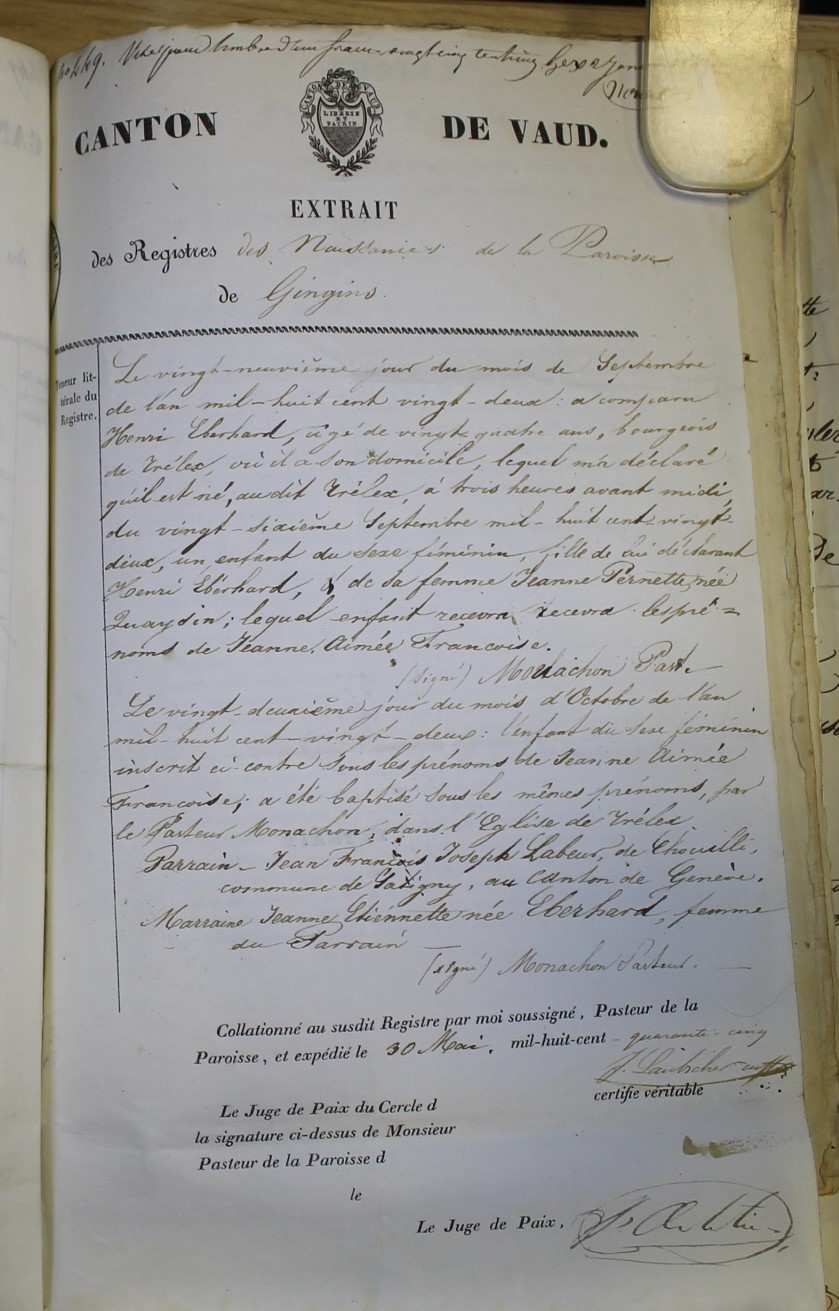 No 449. Visé pour timbre d'un franc vingt cinq centimes Gex
CANTON DE VAUD
LIBERTÉ
ET
PATRIE
CANTON DE VAUD.
EXTRAIT
des Registres des Naissances de la Paroisse
de Gingins.
Teneur lit-
térale du
Registre.
Le vingt-neuvième jour du mois de Septembre
de l'an mil-huit cent vingt-deux : a comparu
Henri Eberhard, âgé de vingt quatre ans, bourgeois
de Trélex, où il a son domicile, lequel m'a déclaré
qu'il est né, au dit Trélex, à trois heures avant midi,
du vingt-sixième Septembre mil-huit cent-vingt-
deux, un enfant du Sexe féminin, fille de lui déclarant
Henri Eberhard, & de sa femme Jeanne Pernette née
Quaydin ; lequel enfant recevra recevra les pré-=
noms de Jeanne Aimée Francoise.
(signé) Monachon Past.
Le vingt-deuxième jour du mois d'Octobre de l'an
mil-huit cent-vingt-deux : l'enfant du Sexe féminin
inscrit ci-contre sous les prénoms de Jeanne Aimée
Francoise, a été baptisé sous les mêmes prénoms, par
le Pasteur Monachon, dans l'Eglise de Trélex
Parrain - Jean François Joseph Labeur, de Chouilli,
commune de Satigny, au Canton de Genève.
Marraine Jeanne Etiennette née Eberhard, femme
du Parrain —
(signé) Monachon Pasteur. —
Collationné au susdit Registre par moi soussigné, Pasteur de la
Paroisse, et expédié le 30 Mai, mil-huit-cent-quarante-cinq
certifie véritable
Le Juge de Paix du Cercle d
la signature ci-dessus de Monsieur
Pasteur de la Paroisse d
le
Le Juge de Paix,